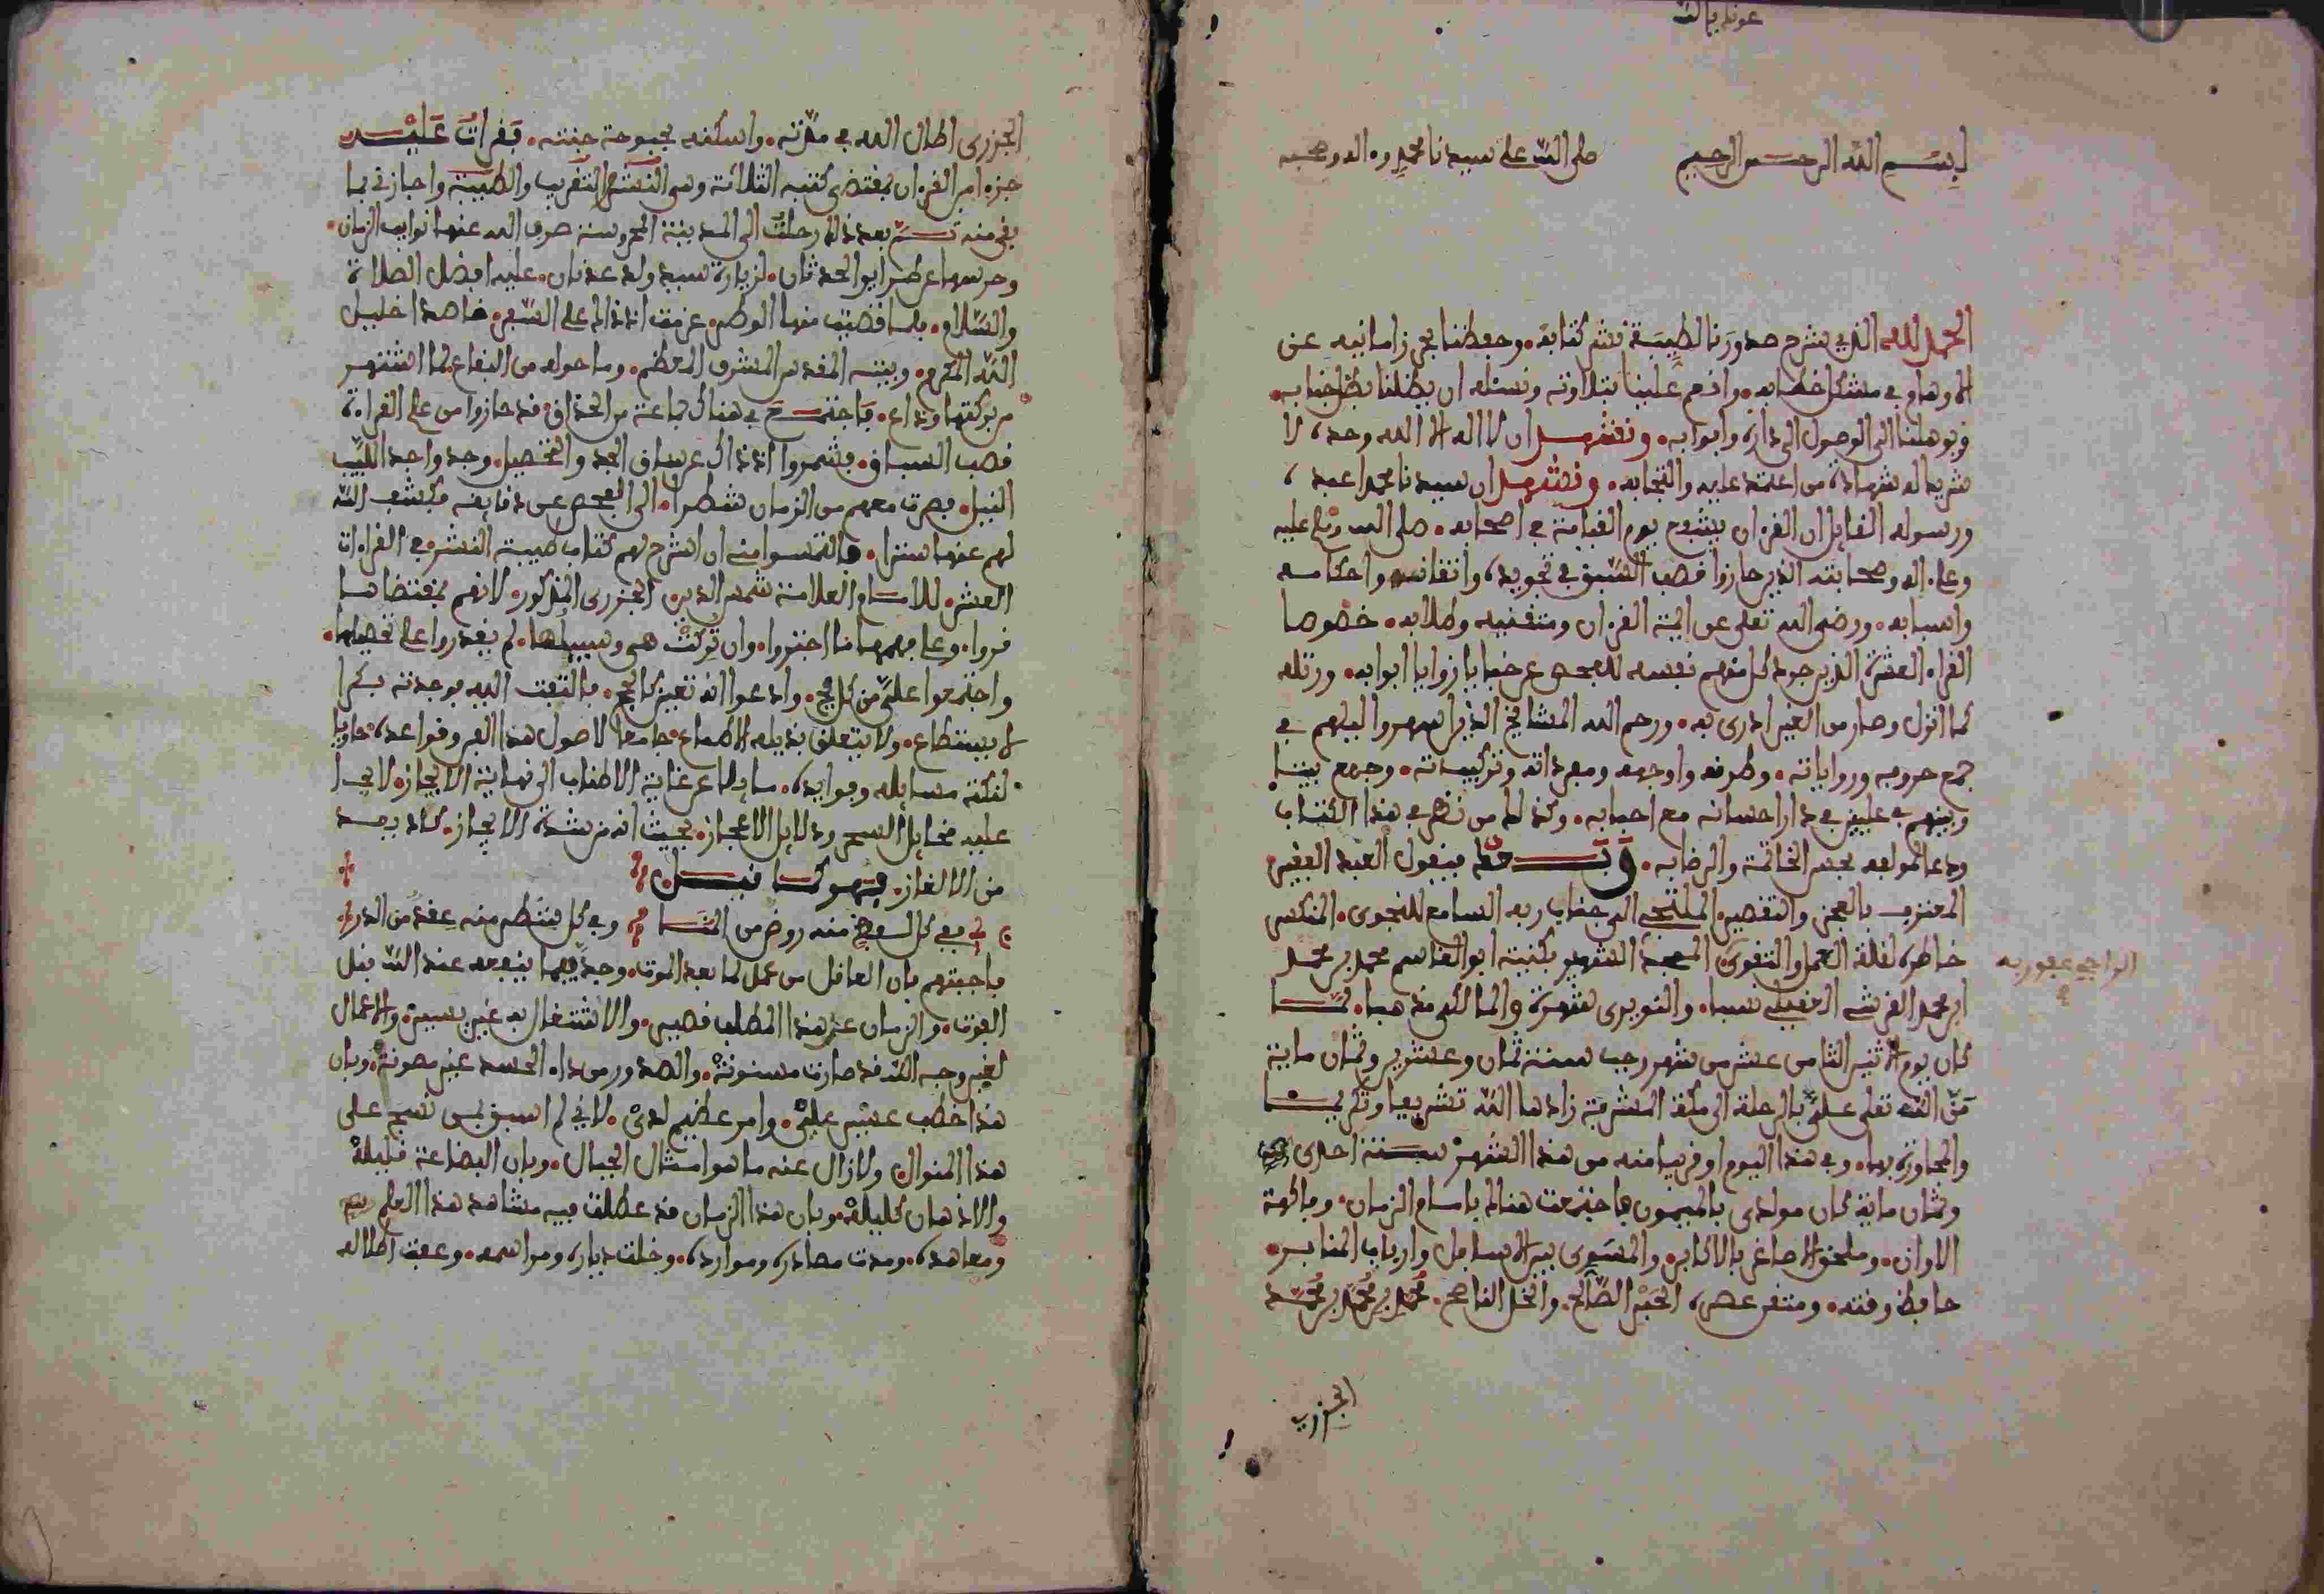 عونك يا الله
بسم الله الرحمن الرحيم صلى الله على سيدنا محمد وءاله وصحبه
الحمد لله الذي شرح صدورنا لطيبة نشر كتابه. وحفظنا بحرز امانيه عن
الاوهام في مشكل خطابه. وانعم علينا بتلاوته ونسئله ان يظلنا بظل جنابه.
ويوهلنا الى الوصول الى داره وابوابه. ونشهد ان لا اله الا الله وحده لا
شريك له شهادة من اعتمد عليه والتجا به. ونشهد ان سيدنا محمدا عبده
ورسوله القايل ان القرءان يشفع يوم القيامة في اصحابه. صلى الله وسلم عليه
وعلى ءاله وصحابته الذين حازوا قصب السبق في تجويده واتقانه واحكامه
واسبابه. ورضي الله تعلى عن ايمة القرءان ومتقنيه وطلابه. خصوصا
القراء العشرة الذين جرد كل منهم نفسه للفحص عن خبايا زوايا ابوابه. ورتله
كما انزل وصار من الغير ادرى به. ورحم الله المشايخ الذين اسهروا ليلهم في
جمع حروفه ورواياته. وطرقه واوجهه ومفرداته وتركيباته. وجمع بيننا
وبينهم في عليين في دار احسانه مع احبابه. وكذلك من نظر في هذا الكتاب
ودعا لمولفه بحسن الخاتمة والرضا به. وبعد فيقول العبد الفقير
المعترف بالعجز والتقصير الملتجي الى جناب ربه السامع للنجوى. المنكسر
خاطره لقلة العمل والتقوى الشهير بكنيته ابو القاسم محمد بن محمد
الراجي عفو ربه
ابن محمد القرشي نسبا. والنويري شهرة والمالكي مذهبا. لما
كان يوم الاثنين الثامن عشر من شهر رجب سنة ثمان وعشرين وثمان ماية
من الله تعلى علي بالرحلة الى مكة المشرفة زادها الله تشريفا وتكريما
والمجاورة بها. وفي هذا اليوم او قريبا منه من هذا الشهر سنة احدى
وثمان ماية كان مولدي بالميمون فاجتمعت هناك بامام الزمان. وفاكهة
الاوان. وملحق الاصاغر بالاكابر. والمسوي بين الاسافل وارباب المنابر.
حافظ وقته. ومتقن عصره الحبر الصالح. والخل الناصح. محمد بن محمد بن محمد
الجزري
الجزري اطال الله في مدته. واسكنه بحبوحة جنته. فقرات عليه
جزءا من القرءان بمقتضى كتبه الثلاثة وهي النشر والتقريب والطيبة واجازني بما
بقي منه ثم بعد ذلك رحلت الى المدينة المحروسة صرف الله عنها نوايب الزمان.
وحرسها عن طرايق الحدثان. لزيارة سيد ولد عدنان. عليه افضل الصلاة
والسلام. فلما قضيت منها الوطر. عزمت اذ ذاك على السفر. قاصدا خليل
الله المكرم. وبيته المقدس المشرف المعظم. وما حوله من البقاع لما اشتهر
من بركتها وذاع. فاجتمع بي هناك جماعة من الحذاق. قد حازوا من علم القراءة
قصب السباق. فشمروا اذ ذاك عن ساق الجد والتحصيل. وجد واجد اللبيب
النبيل. فصرفت معهم من الزمان شطرا. الى الفحص عن دقايقه فكشف الله
لهم عنها سترا. فالتمسوا مني ان اشرح لهم كتاب طيبة النشر في القراءات
العشر. للامام العلامة شمس الدين الجزري المذكور. لانهم بمقتضاها
قروا. وعلى فهمها ما اجتروا. وان تركت هي وسبيلها. لم يقدروا على تحصيلها.
واجتمعوا علي من كل فج. وادعوا انه تعين كالحج. فالتفت اليه فوجدته بكرا
لا يستطاع. ولا يتعلق بذيله الاطماع. جامعا لاصول هذا الفن وقواعده. حاويا
لنكت مسايله وفوايده. مايلا عن غاية الاطناب الى نهاية الايجاز. لايحا
عليه مخايل السحر ودلايل الاعجاز. بحيث انه من شدة الايجاز. كاد يعد
من الالغاز. فهو كما قيل
ففي كل لفظ منه روض من المنى وفي كل سطر منه عقد من الدر
فاجبتهم بان العاقل من عمل لما بعد الموت. وجد فيما ينفعه عند الله قبل
الفوت. والزمان عن هذا المطلب قصير. والاشتغال به غير يسير. والاعمال
لغير وجه الله قد صارت مسنونة. والصدور من داء الحسد غير مصونة. وبان
هذا خطب عسير علي. وامر عظيم لدي. لاني لم اسبق بمن نسج على
هذا المنوال ولا زال عنه ما هو امثال الجبال. وبان البضاعة قليلة
والاذهان كليلة. وبان هذا الزمان قد عطلت فيه مشاهد هذا العلم
ومعاهده. وسدت مصادره وموارده. وخلت دياره ومراسمه. وعفت اطلاله